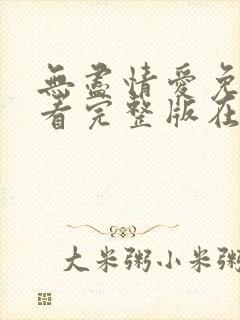 無盡情愛免
看完整版在
大米粥小米粥